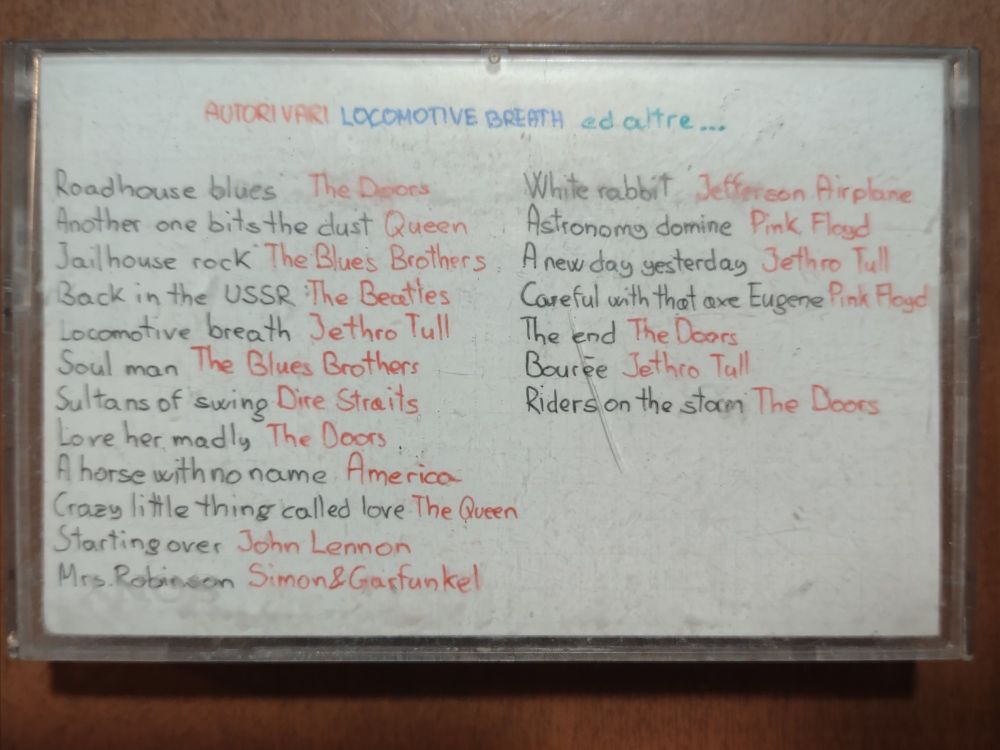 AUTORI VARI LOCOMOTIVE BREATH ed altre...
Roadhouse blues The Doors
Another one bits the dust Queen
Jailhouse rock The Blues Brothers
Back in the USSR The Beatles
Locomotive breath Jethro Tull
Soul man The Blues Brothers
Sultans of swing Dire Straits
Love her madly The Doors
A horse with no name America
Crazy little thing called love The Queen
Starting over John Lennon
Mrs. Robinson Simon & Garfunkel
White rabbit Jefferson Airplane
Astronomy domine Pink Floyd
A new day yesterday Jethro Tull
Careful with that axe Eugene Pink Floyd
The end The Doors
Bourée Jethro Tull
Riders on the storm The Doors